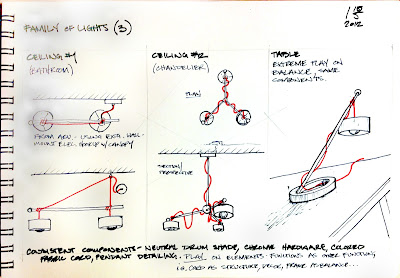 FAMILY OF LIGHTS (3)
1 10/5 2012
CEILING #1
(BATHROOM)
CEILING #2
(CHANDELIER)
TABLE
EXTREME PLAY ON
BALANCE, SAME
COMPONENTS.
PLAN
FROM ABV. USING EXTG. WALL-
MOUNT ELEC. W/ CANOPY
SECTION/
PERSPECTIVE
CONSISTENT COMPONENTS - NEUTRAL DRUM SHADE, CHROME HARDWARE, COLORED
FABRIC CORD, PENDANT DETAILING. PLAY ON ELEMENTS FUNCTIONS AS OTHER FUNCTION,
I.E. CORD AS STRUCTURE, DECOR, FRAME AS BALANCE...